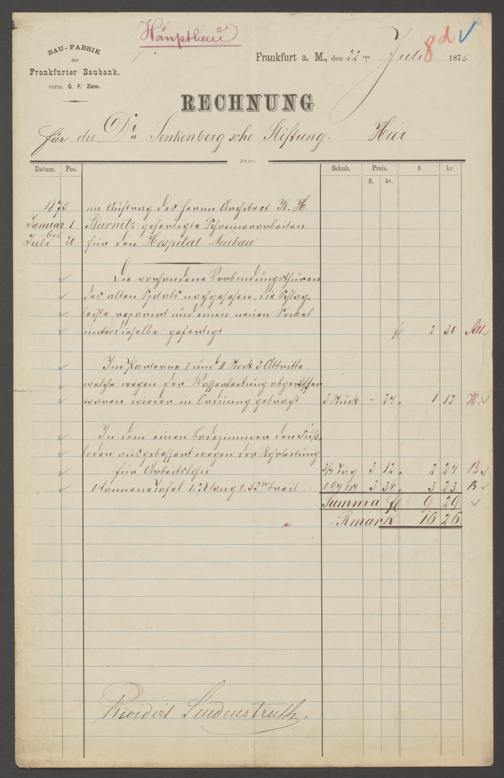 Hauptbau
8 d
BAU-FABRIK
der
Frankfurter Baubank,
vorm. G. F. Ziem.
Frankfurt a. M., den 22 ten Juli 1875
RECHNUNG
für die Dr. Senkenberg'sche Stiftung. Hier
über:
Datum. Pos. Schuh. Preis. fl. kr.
fl. kr.
1875 im Auftrag des Herrn Architect
Januar 1 Burnitz gefertigte Schreinerarbeiten
bis
Juli 20 für den Hospital Neubau
Die vorhandene Verbindungsthüren
des alten Spitals nachgesehen, die Schlag-
leiste reparirt und einen neuen Sockel
an dieselbe gefertigt fl 2 30
Im Parterre 1 und II Stock 3 Abtritte
welche wegen der Wasserleitung abgerissen
waren wieder in Ordnung gebracht 3 Stück - 24 1 12
In dem einen Badezimmer den Fuß-
boden ausgebessert wegen der Rohrleitung
für Arbeitslohn 3/4 Tag 3 12 2 24 B
1 tannene Tafel lang breit 3 36 3 23 B
Summa fl 9 29
Rmark 16 26
Revidirt Lindenstruth.